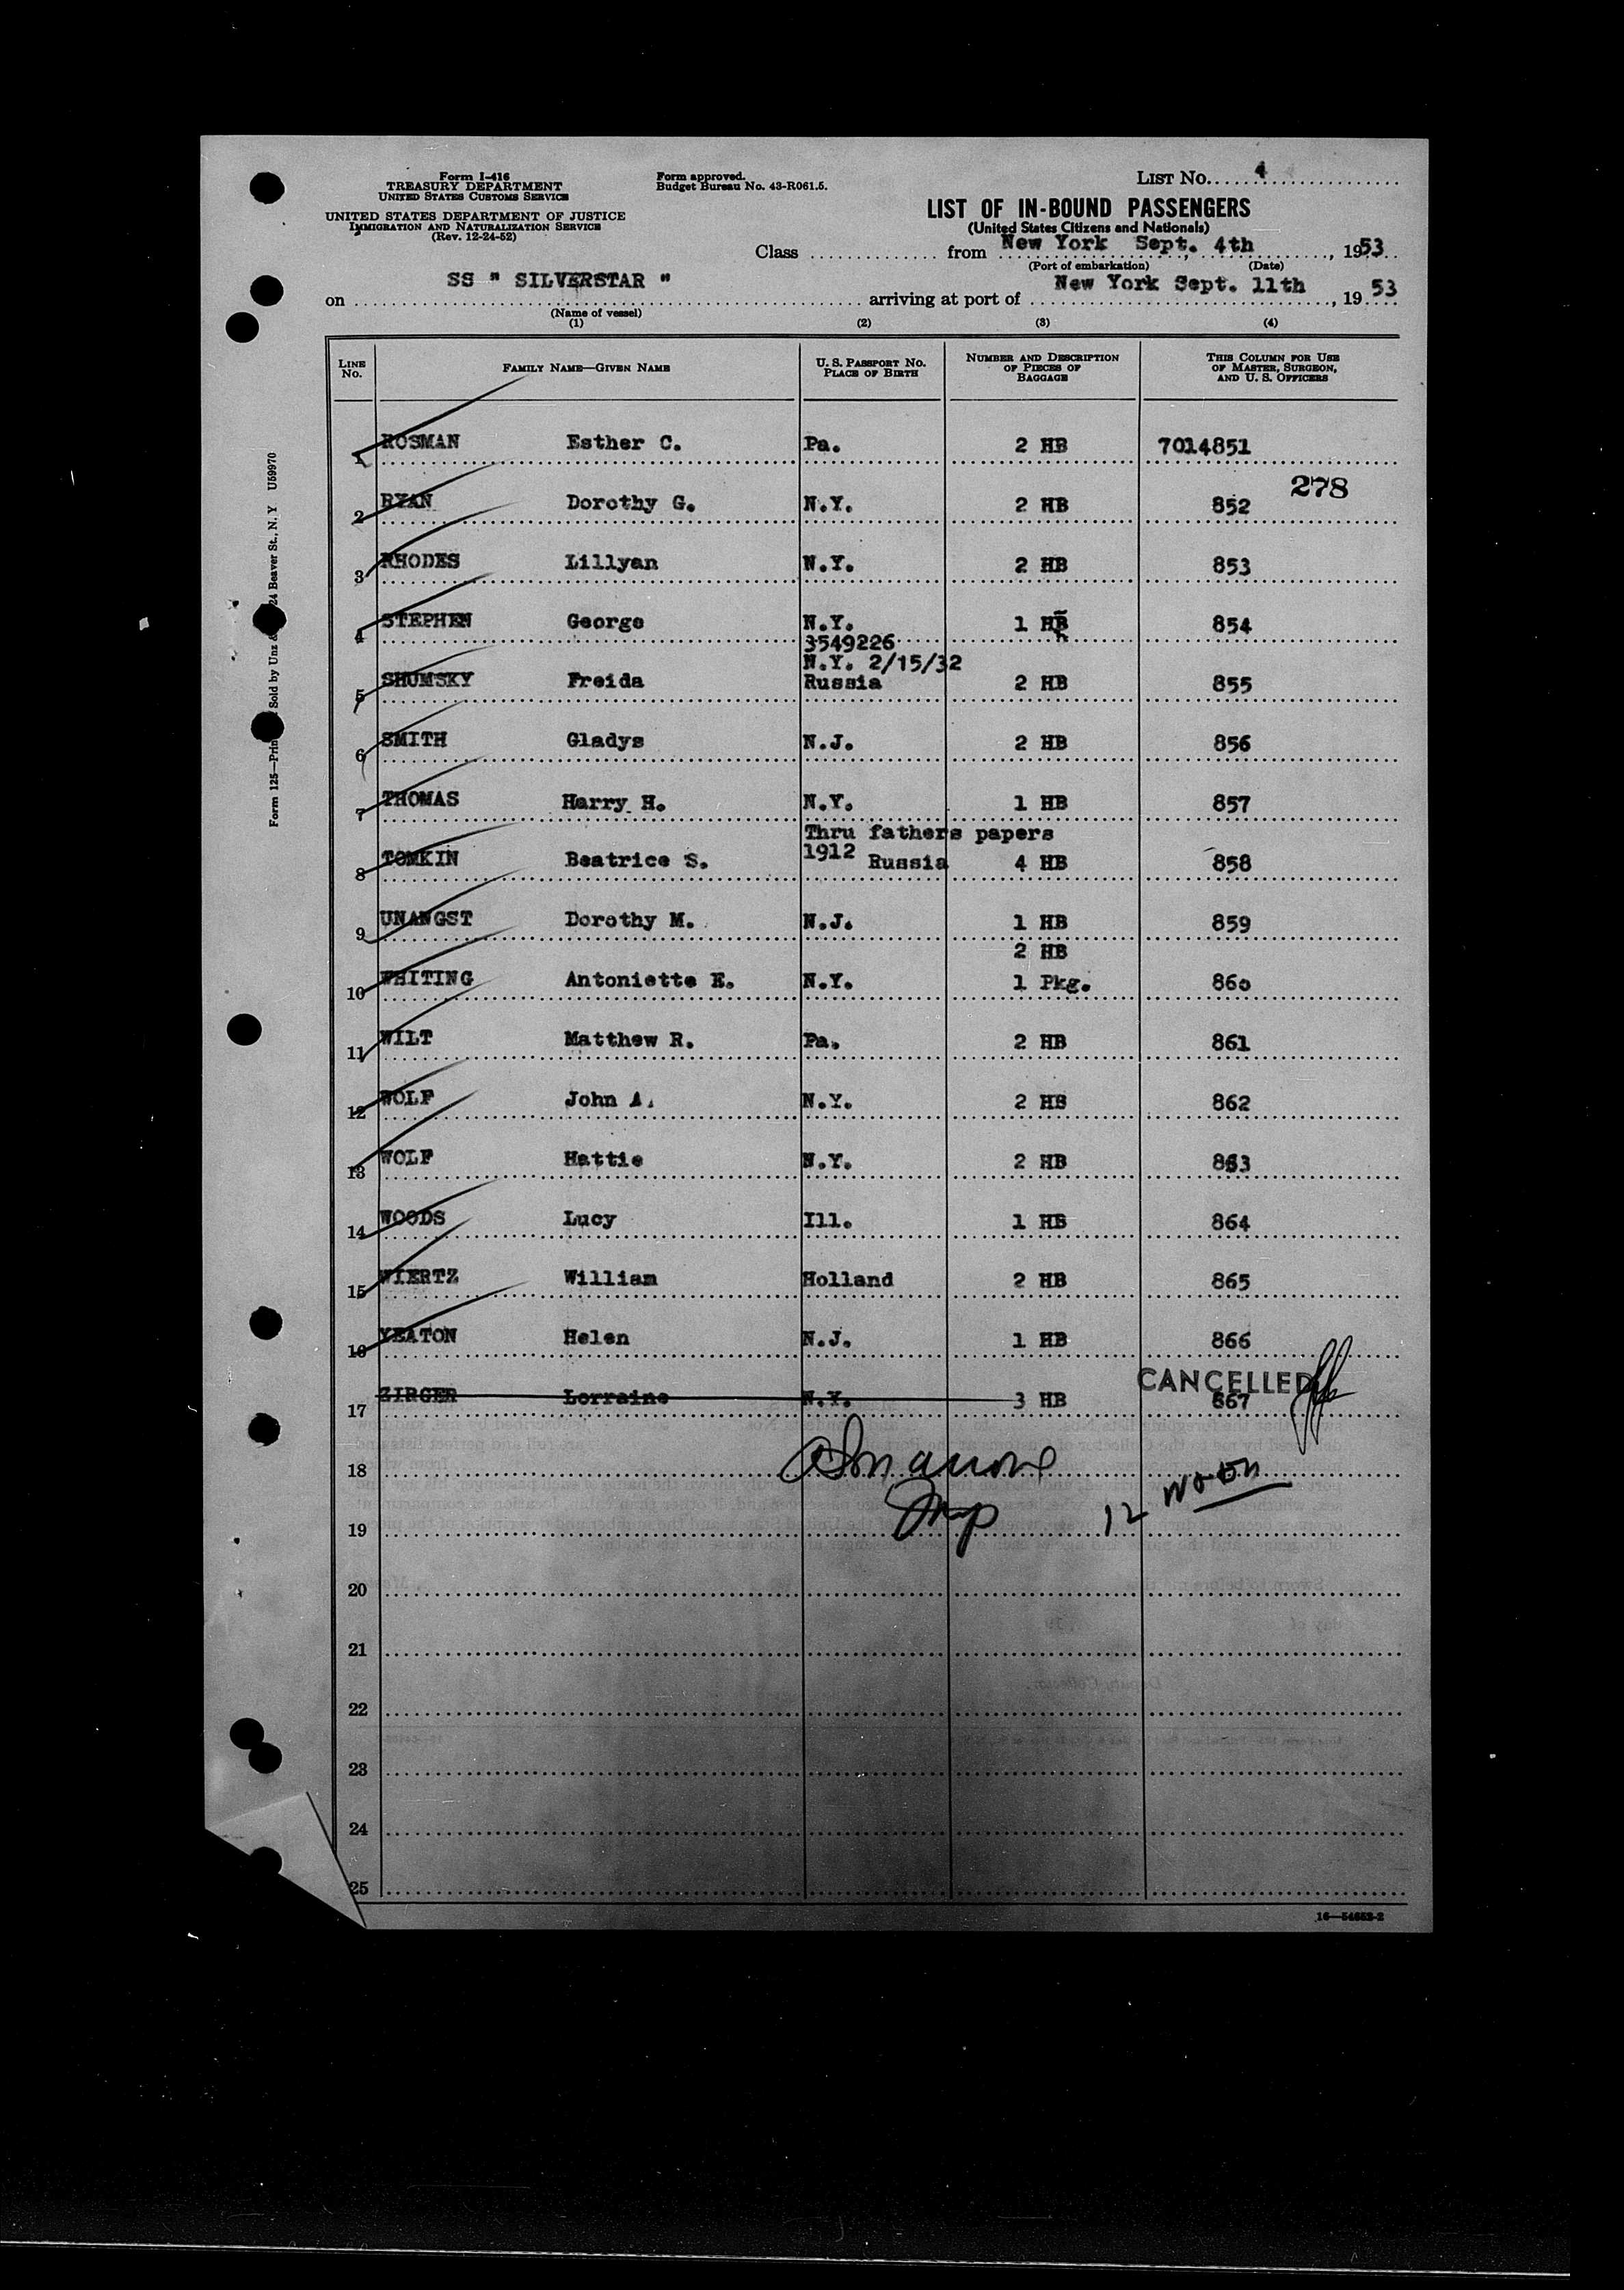 Form I-416
TREASURY DEPARTMENT
UNITED STATES CUSTOMS SERVICE
UNITED STATES DEPARTMENT OF JUSTICE
IMMIGRATION AND NATURALIZATION SERVICE
(Rev. 12-24-52)
Form approved.
Budget Bureau No. 43-R061.5.
LIST NO. 4
LIST OF IN-BOUND PASSENGERS
(United States Citizens and Nationals)
Class from New York Sept. 4th, 1953
(Port of embarkation) (Date)
on SS " SILVERSTAR " arriving at port of New York Sept. 11th, 1953
(Name of vessel)
(1) (2) (3) (4)
LINE No. FAMILY NAME—GIVEN NAME U. S. PASSPORT NO. PLACE OF BIRTH NUMBER AND DESCRIPTION OF PIECES OF BAGGAGE THIS COLUMN FOR USE OF MASTER, SURGEON, AND U. S. OFFICERS
1 ROSMAN Esther C. Pa. 2 HB 7014851
278
2 RYAN Dorothy G. N.Y. 2 HB 852
3 RHODES Lillyan N.Y. 2 HB 853
4 STEPHEN George N.Y. 1 HB 854
3549226
N.Y. 2/15/32
5 SHUMSKY Freida Russia 2 HB 855
6 SMITH Gladys N.J. 2 HB 856
7 THOMAS Harry H. N.Y. 1 HB 857
Thru fathers papers
1912
8 TOMKIN Beatrice S. Russia 4 HB 858
9 UNANGST Dorothy M. N.J. 1 HB 859
2 HB
10 WHITING Antoniette E. N.Y. 1 Pkg. 860
11 WILT Matthew R. Pa. 2 HB 861
12 WOLF John A. N.Y. 2 HB 862
13 WOLF Hattie N.Y. 2 HB 863
14 WOODS Lucy Ill. 1 HB 864
15 WIERTZ William Holland 2 HB 865
16 YEATON Helen N.J. 1 HB 866
CANCELLED
17 ZIRGER Lorraine N.Y. 3 HB 867
18
12
19
20
21
22
23
24
25
16—54653-2
Sold by Unz & 24 Beaver St., N. Y U59970
Form 125—Prin